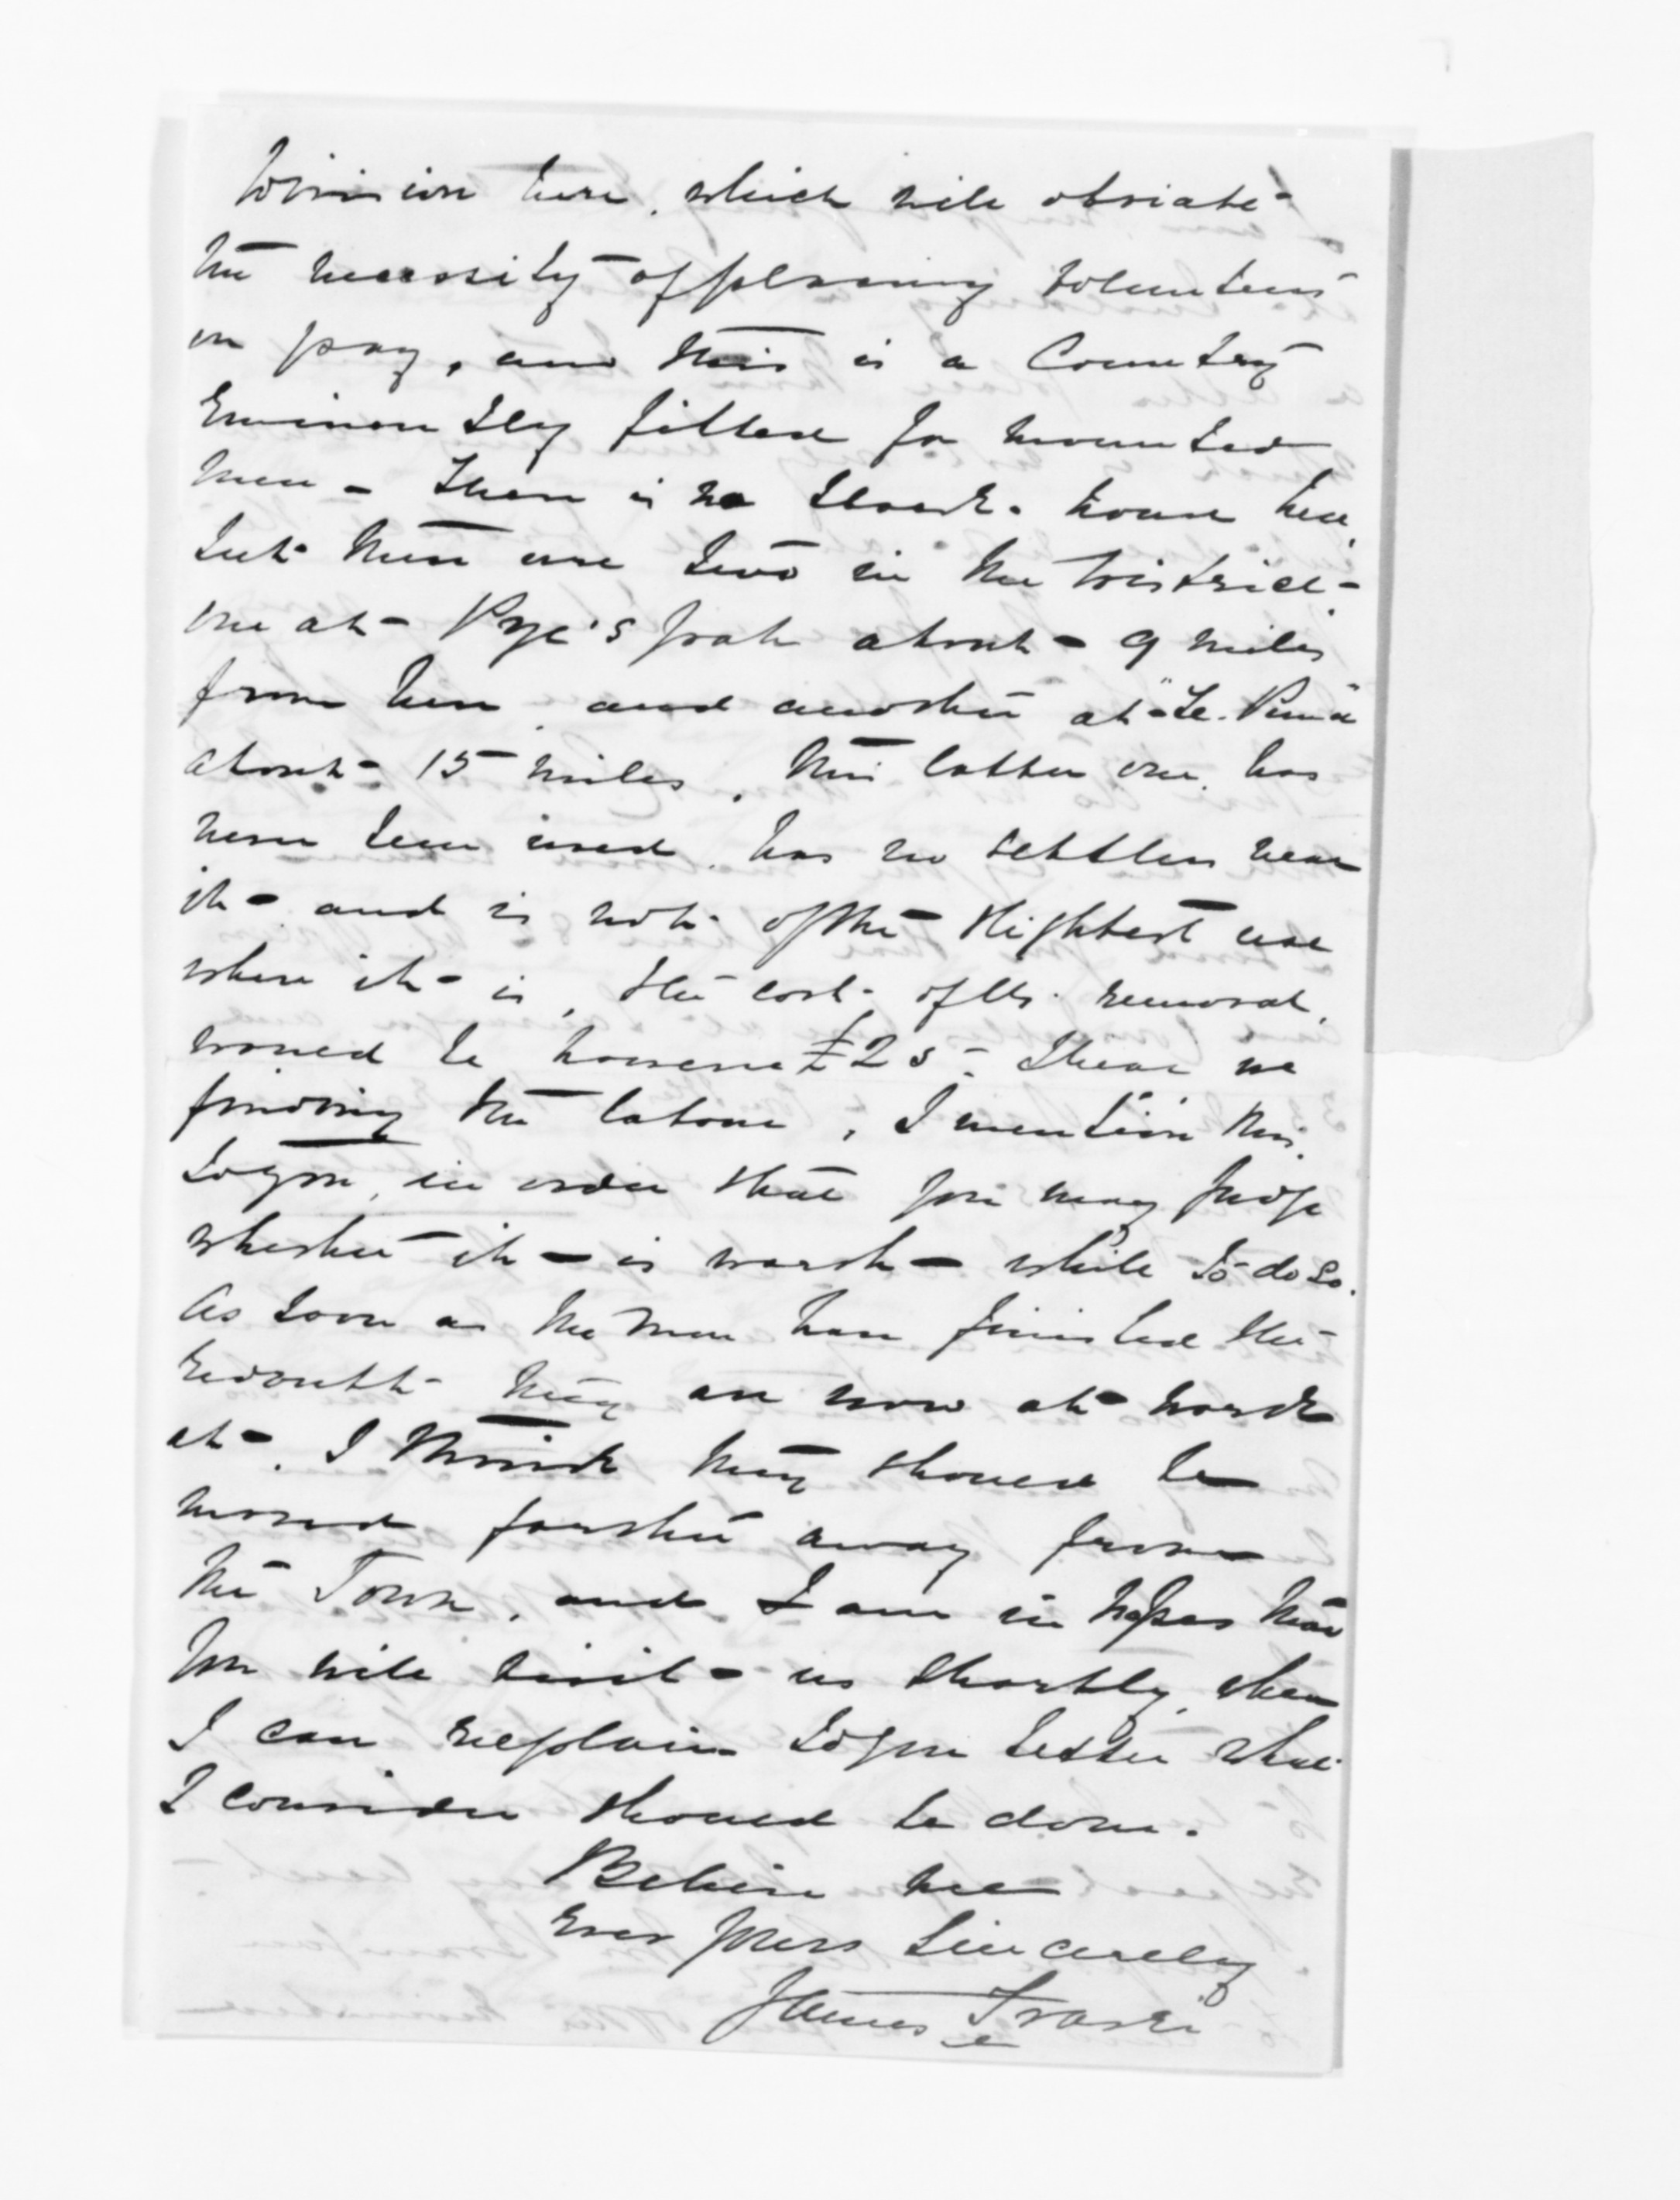 Division here, which will obviate
the necessity of placing Volunteers
on pay, and this is a Country
Eminently fitted for mounted
men - There is no block-house here,
but there are two in the District -
one at Pye's pah about 9 miles
from here, and another at "Te Puna"
about 15 miles. This latter one, has
never been used, has no settlers near
it - and is not of the slightest use
where it is, the cost of its removal,
would be however £25 - I hear we
finding the labour, I mention this
to you, in order that you may Judge
whether it is worth while to do so.
As soon as the men have finished the
redoubt they are now at work
at, I think they should be
moved farther away from
the Town, and I am in hopes that
you will visit us shortly, when
I can explain to you better what
I consider should be done.
Believe me
Ever yours Sincerely
James Fraser